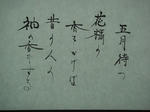 五月待つ
花橘の
香をかげば
昔の人の
袖の香ぞする